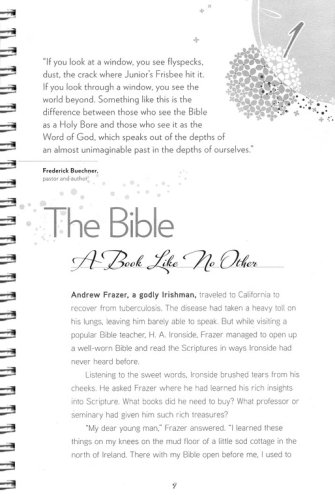 1
"If you look at a window, you see flyspecks,
dust, the crack where Junior's Frisbee hit it.
If you look through a window, you see the
world beyond. Something like this is the
difference between those who see the Bible
as a Holy Bore and those who see it as the
Word of God, which speaks out of the depths of
an almost unimaginable past in the depths of ourselves."
Frederick Buechner,
pastor and author
The Bible
A Book Like No Other
Andrew Frazer, a godly Irishman, traveled to California to
recover from tuberculosis. The disease had taken a heavy toll on
his lungs, leaving him barely able to speak. But while visiting a
popular Bible teacher, H. A. Ironside, Frazer managed to open up
a well-worn Bible and read the Scriptures in ways Ironside had
never heard before.
Listening to the sweet words, Ironside brushed tears from his
cheeks. He asked Frazer where he had learned his rich insights
into Scripture. What books did he need to buy? What professor or
seminary had given him such rich treasures?
"My dear young man," Frazer answered. "I learned these
things on my knees on the mud floor of a little sod cottage in the
north of Ireland. There with my Bible open before me, I used to
9